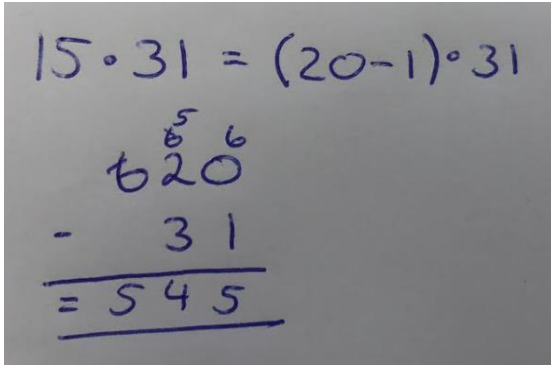 15 · 31 = (20-1) · 31
5
6 6
620
- 31
= 545